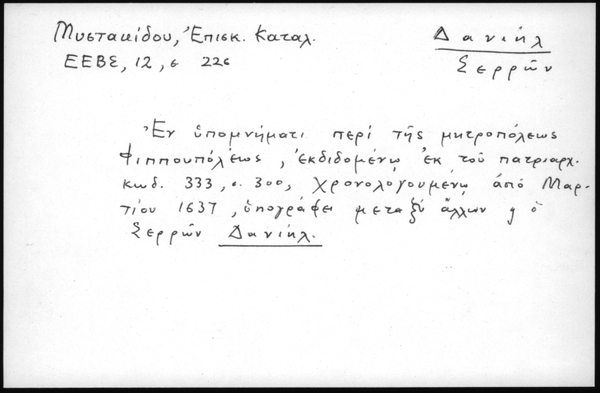 Μυστακίδου, Ἐπισκ. Καταλ.
Δανιήλ
ΕΕΒΣ, 12, σ 226
Σερρῶν
Ἐν ὑπομνήματι περί τῆς μητροπόλεως
Φιππουπόλεως, ἐκδιδομένῳ ἐκ τοῦ πατριαρχ.
κωδ. 333, σ. 300, χρονολογουμένῳ ἀπό Μαρ-
τίου 1637, ὑπογράφει μεταξύ ἄλλων ὁ
Σερρῶν Δανιήλ.